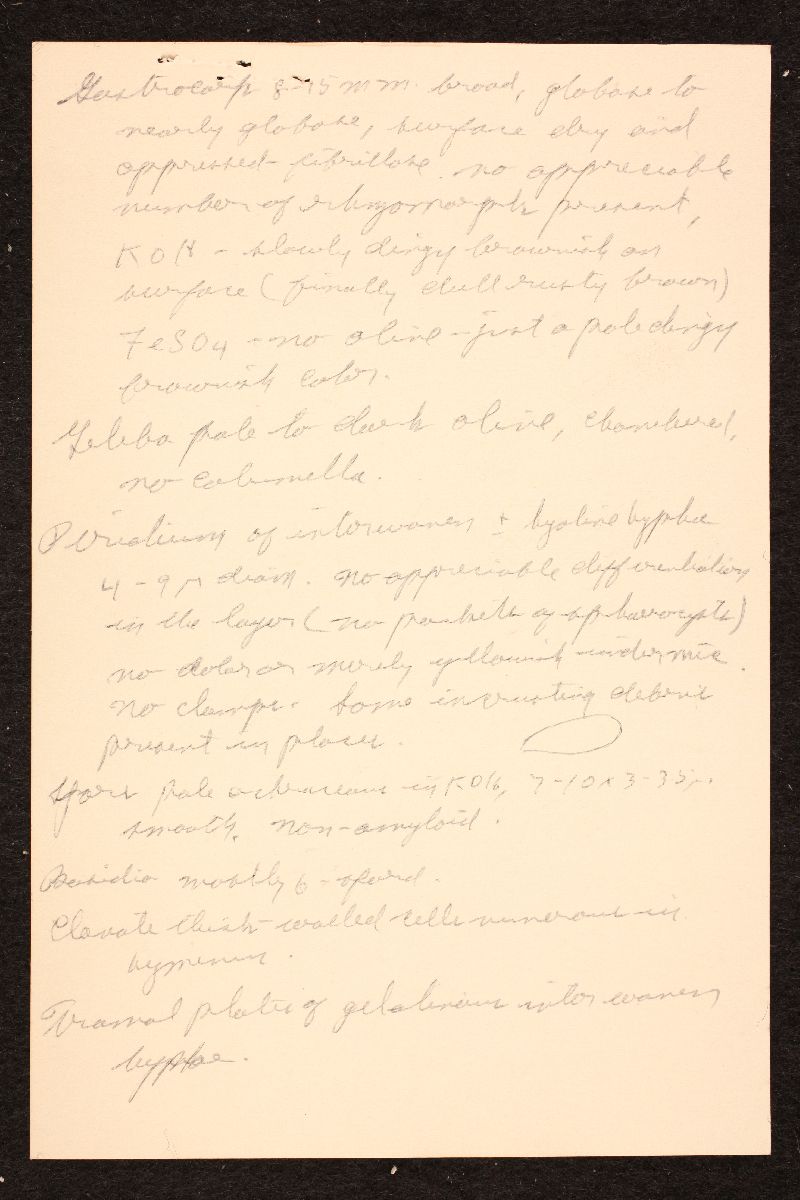 Gastrocarp 8-15 mm. broad, globose to
nearly globose, surface dry and
appressed-fibrillose. no appreciable
number of rhizomorphs present,
KOH - slowly dingy brownish on
surface (finally dull rusty brown)
FeSO4 - no olive - just a pale dingy
brownish color.
Gleba pale to dark olive, chambered,
no columella.
Peridium of interwoven ± hyaline hyphae
4-9 μ diam. no appreciable differentiation
in the layer (no pockets of sphaerocysts)
no color or merely yellowish under mic.
No clamps. Some incrusting debris
present in places.
Spores pale ochraceous in KOH, 7-10 x 3-3.5 μ.
smooth, non-amyloid.
Basidia mostly 6-spored.
Clavate thick-walled cells numerous in
hymenium.
Tramal plates of gelatinous interwoven
hyphae.